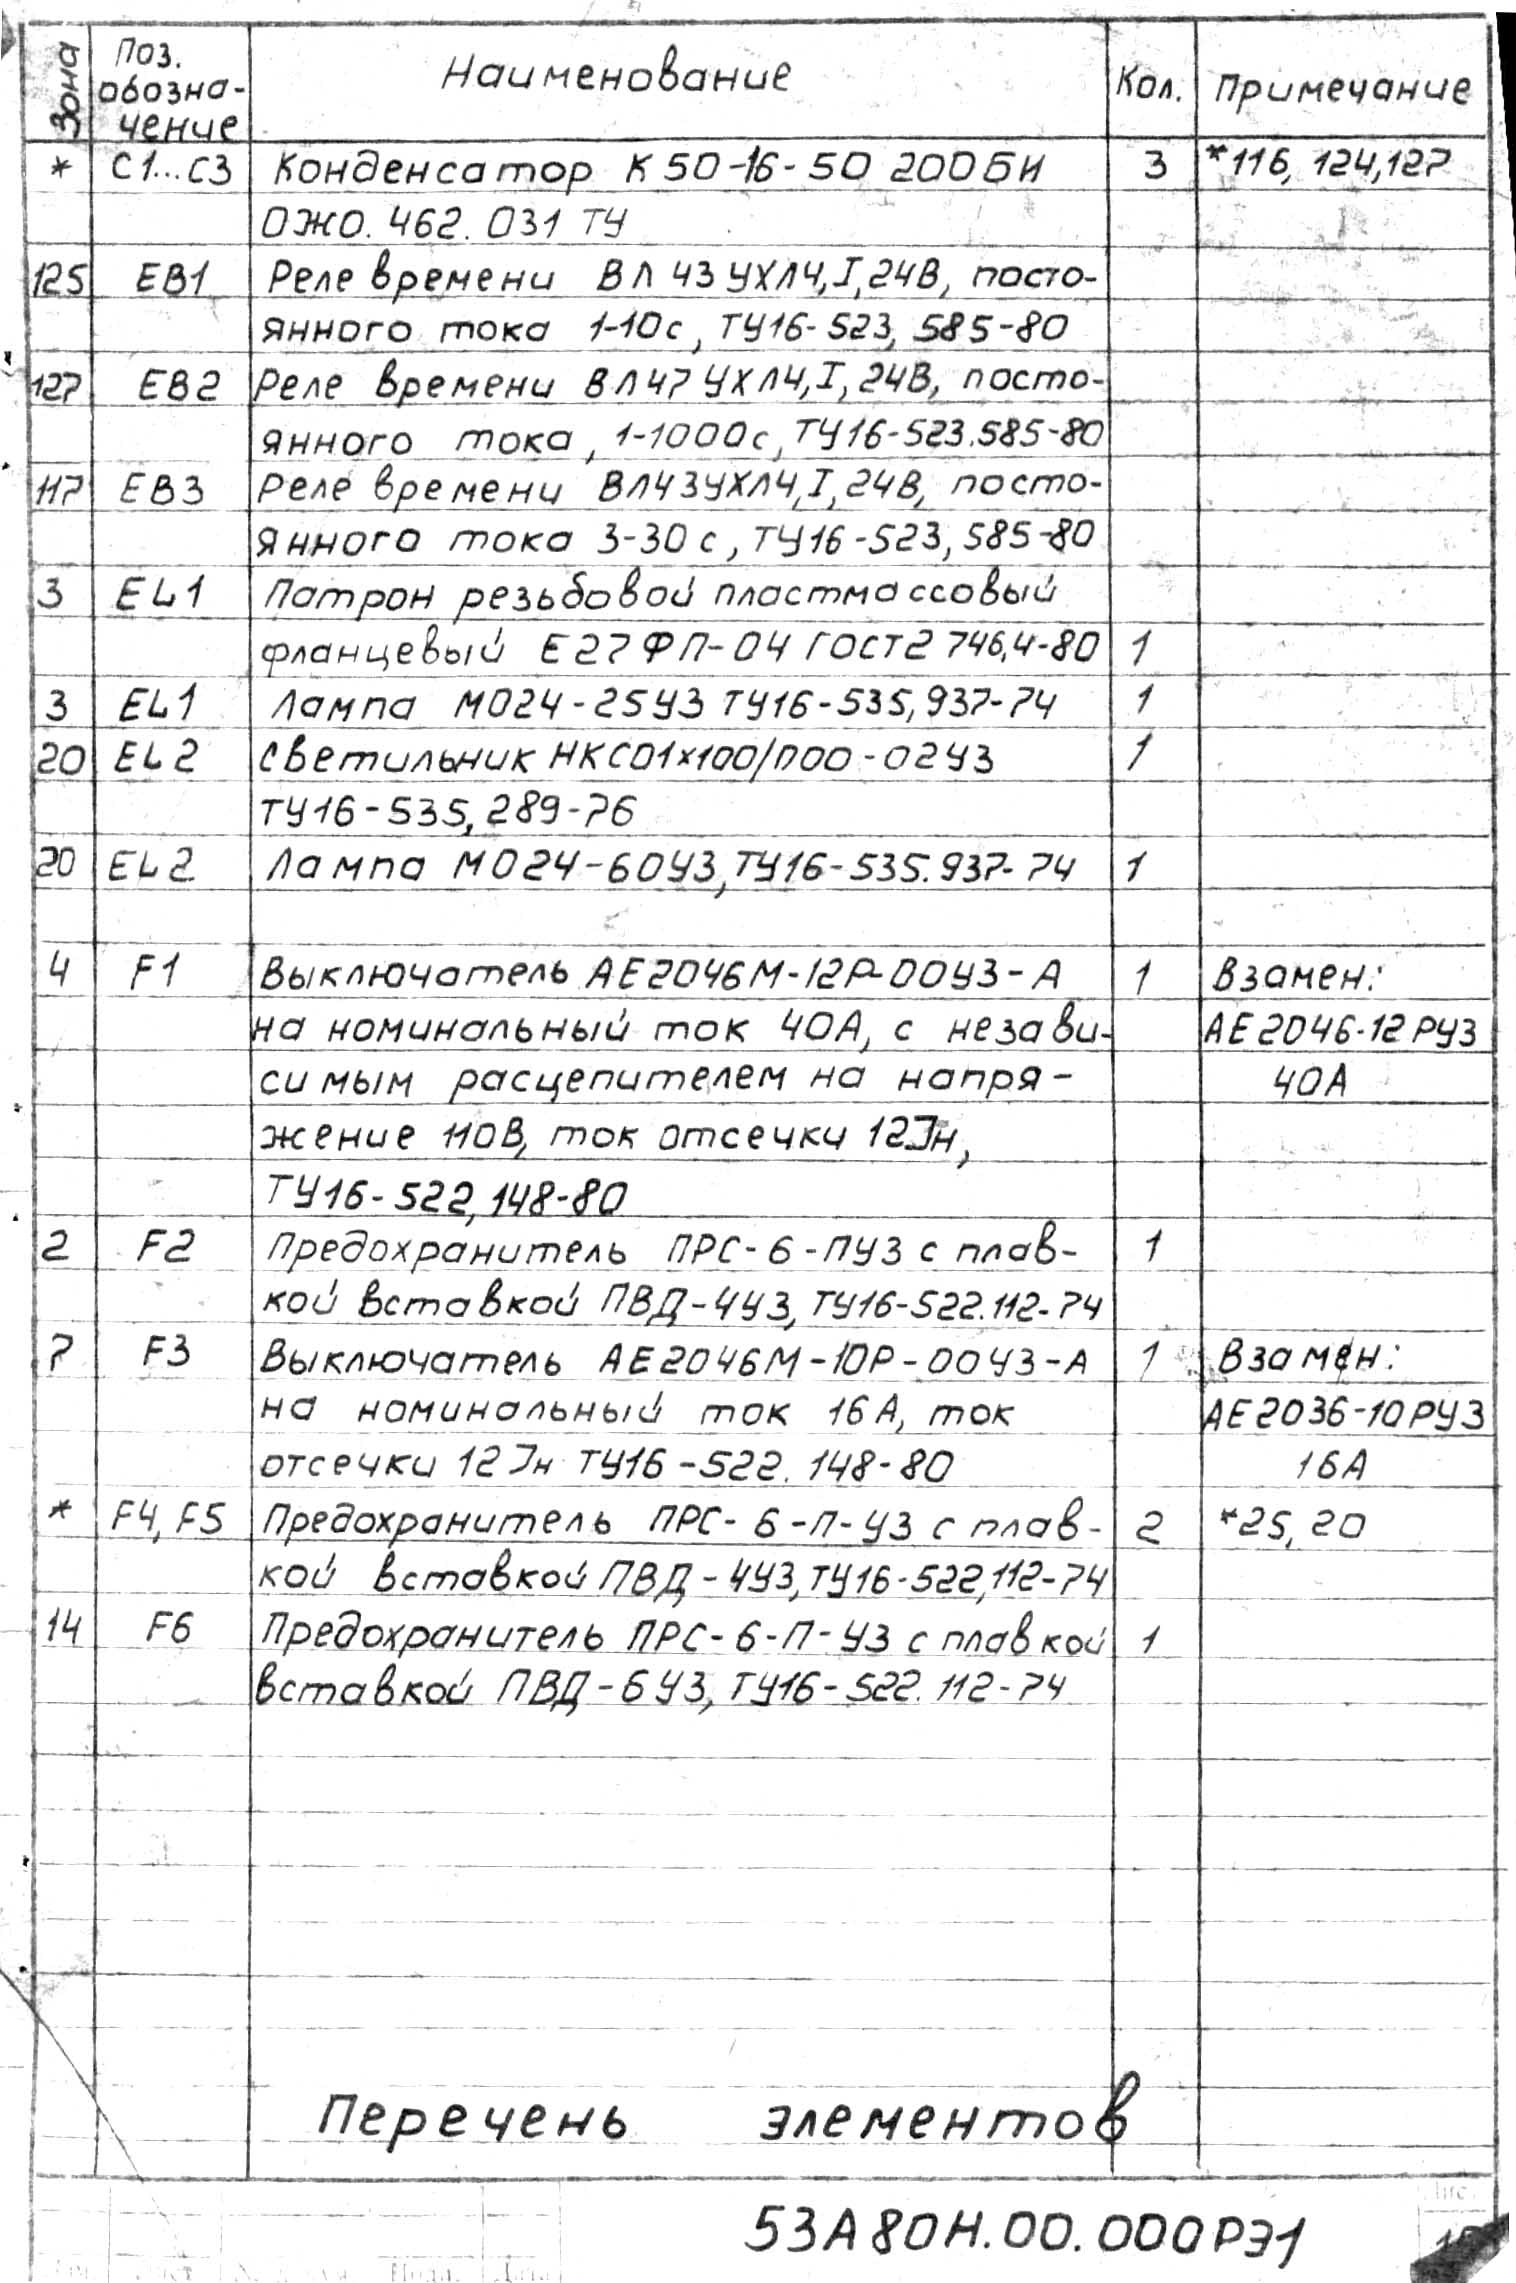 Зона Поз. обозна-чение Наименование Кол. Примечание
* С1...С3 Конденсатор К50-16-50 200БИ 3 *116, 124,127
ОЖО. 462. 031 ТУ
125 ЕВ1 Реле времени ВЛ 43 УХЛ4, I, 24В, посто-
янного тока 1-10с, ТУ16-523, 585-80
127 ЕВ2 Реле времени ВЛ47 УХЛ4, I, 24В, посто-
янного тока, 1-1000с, ТУ16-523.585-80
117 ЕВ3 Реле времени ВЛ43УХЛ4, I, 24В, посто-
янного тока 3-30с, ТУ16-523, 585-80
3 EL1 Патрон резьбовой пластмассовый
фланцевый Е27ФП-04 ГОСТ2 746,4-80 1
3 EL1 Лампа МО24-25У3 ТУ16-535,937-74 1
20 EL2 Светильник НКС01х100/П00-02У3 1
ТУ16-535, 289-76
20 EL2 Лампа МО24-60У3, ТУ16-535.937-74 1
4 F1 Выключатель АЕ2046М-12Р-00У3-А 1 Взамен:
на номинальный ток 40А, с незави- АЕ2046-12РУ3
симым расцепителем на напря- 40А
жение 110В, ток отсечки 12Iн,
ТУ16-522,148-80
2 F2 Предохранитель ПРС-6-ПУ3 с плав- 1
кой вставкой ПВД-4У3, ТУ16-522.112-74
7 F3 Выключатель АЕ2046М-10Р-00У3-А 1 Взамен:
на номинальный ток 16А, ток АЕ2036-10РУ3
отсечки 12Iн ТУ16-522. 148-80 16А
* F4, F5 Предохранитель ПРС-6-П-У3 с плав- 2 *25, 20
кой вставкой ПВД-4У3, ТУ16-522,112-74
14 F6 Предохранитель ПРС-6-П-У3 с плавкой 1
вставкой ПВД-6У3, ТУ16-522. 112-74
Перечень элементов
53А80Н.00.000РЭ1